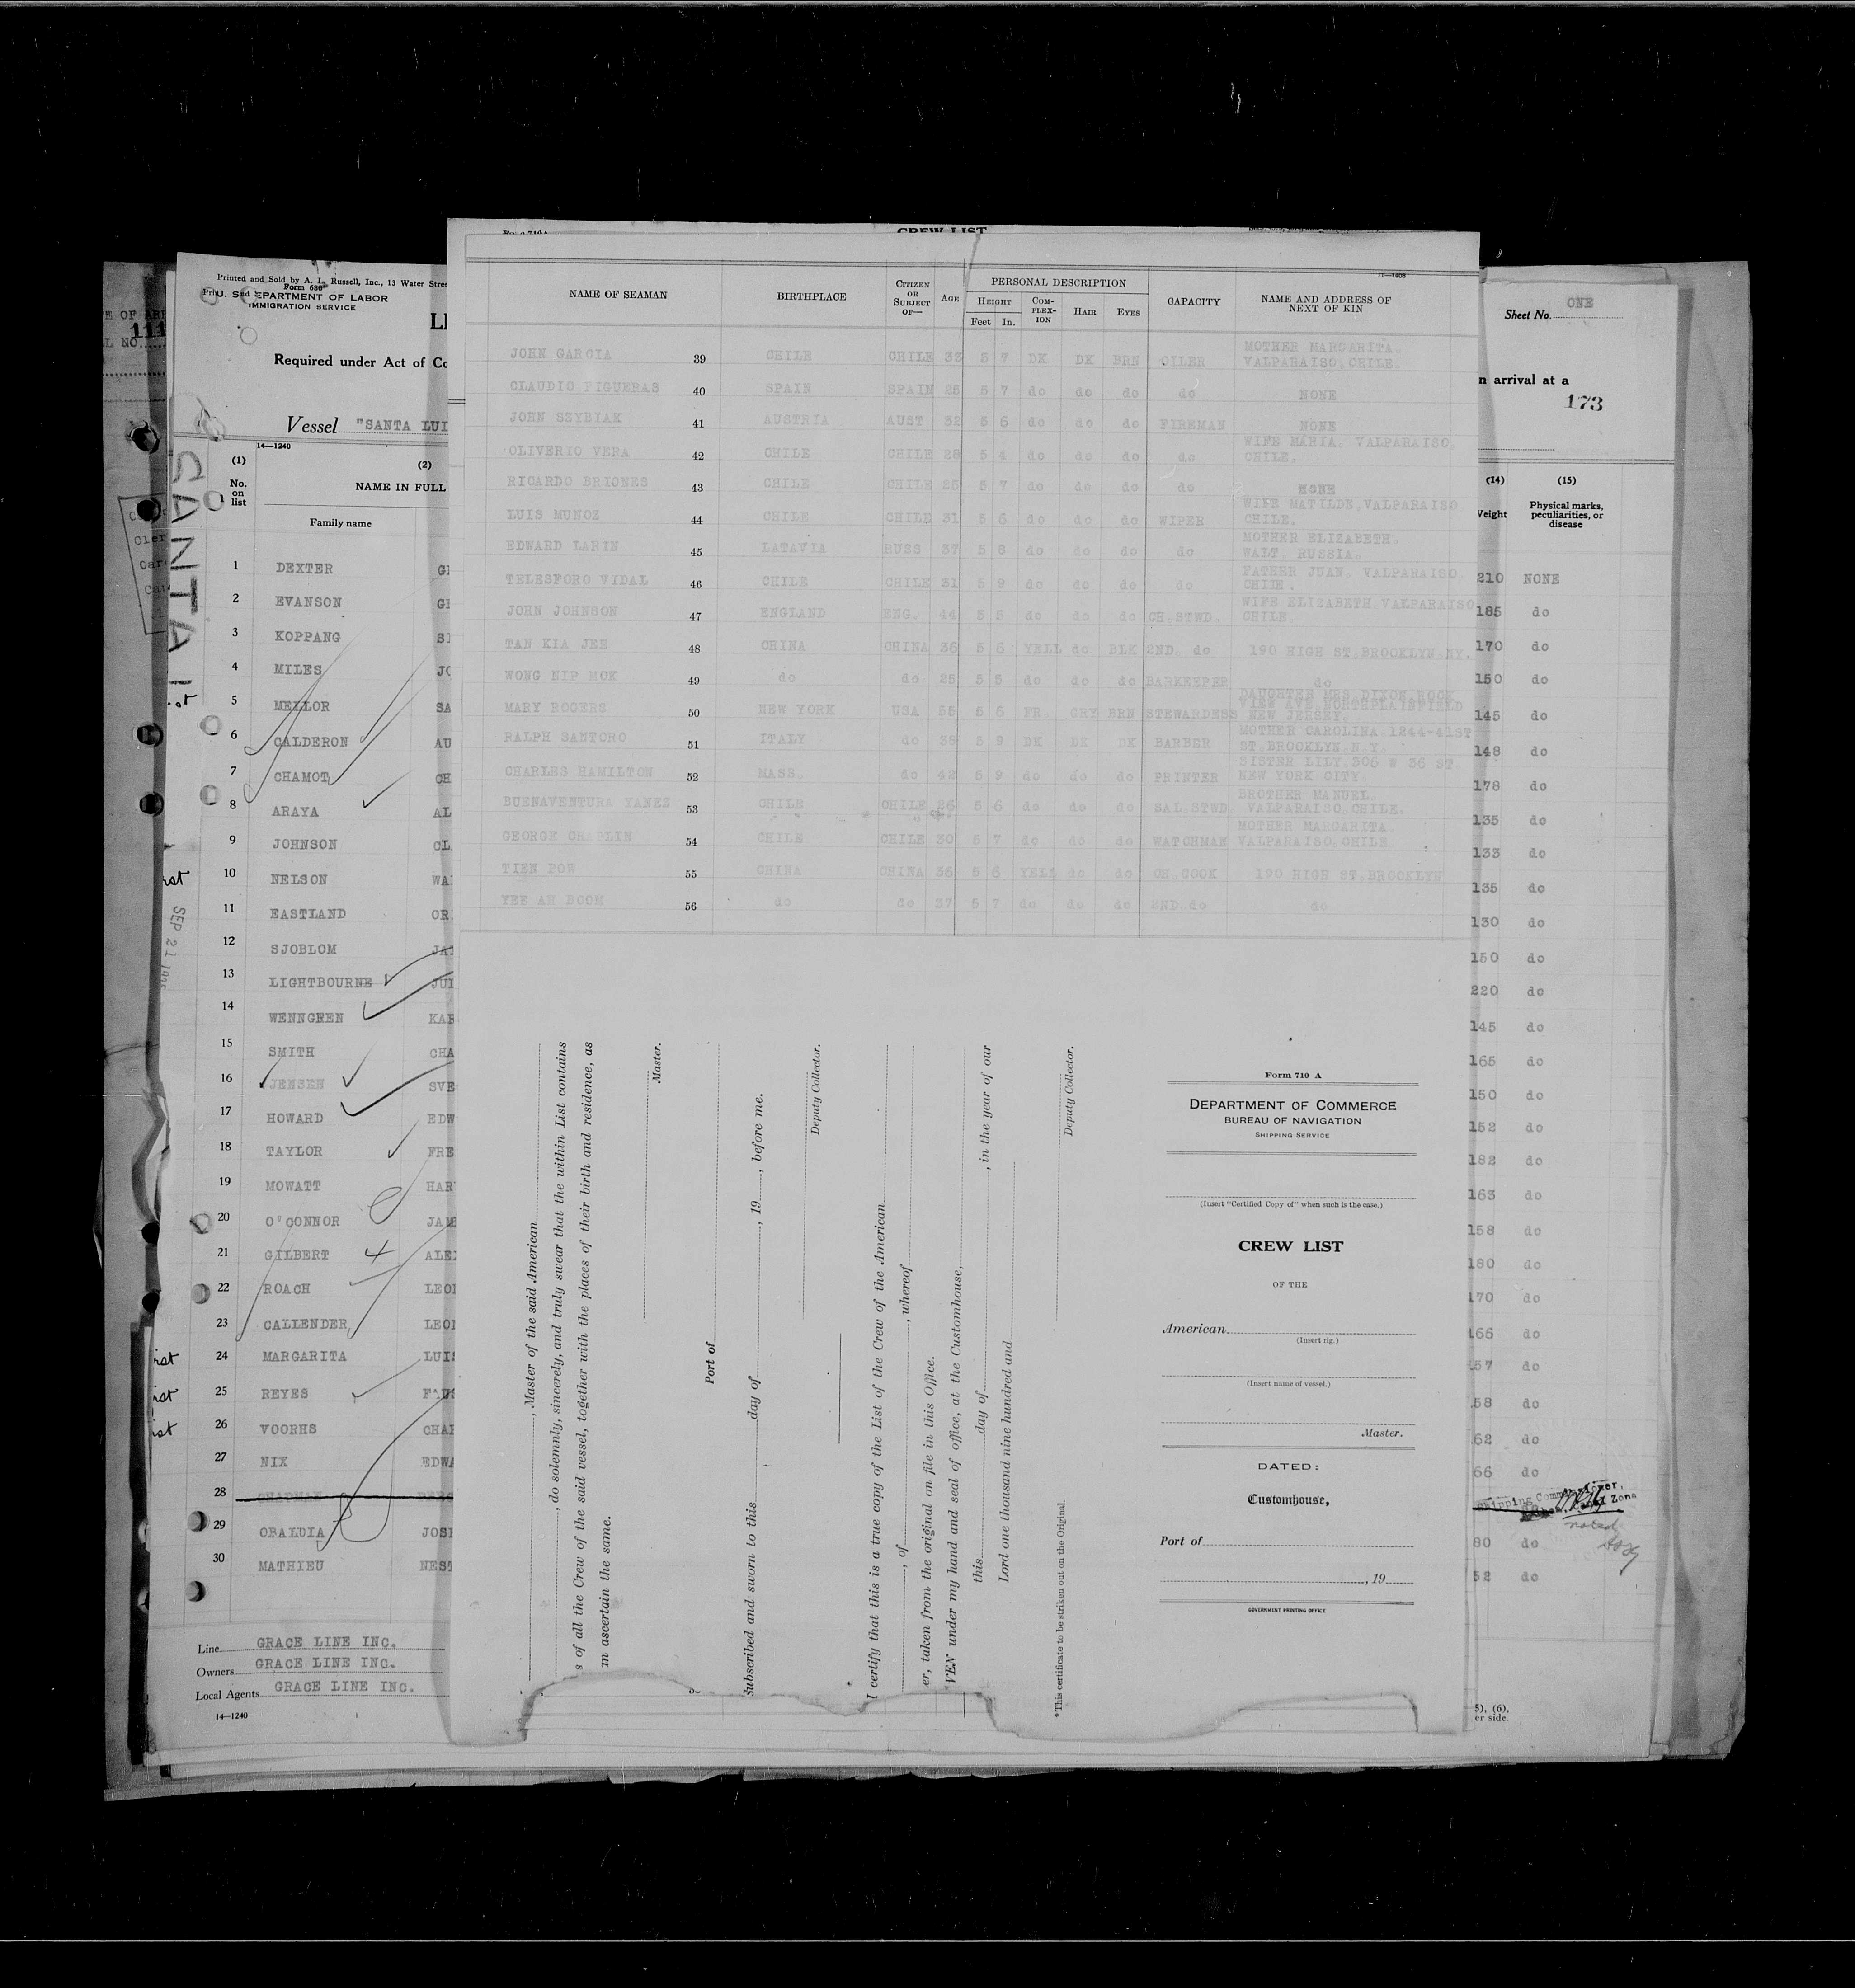 Printed and Sold by A. L. Russell, Inc., 13 Water Stree
Form 680
U. S. DEPARTMENT OF LABOR
IMMIGRATION SERVICE
Required under Act of Co
Vessel "SANTA LUI
14—1240
(1)
(2)
No.
on
list
NAME IN FULL
Family name
1 DEXTER
2 EVANSON
3 KOPPANG
4 MILES
5 MELLOR SA
6 CALDERON AU
7 CHAMOT CH
8 ARAYA AL
9 JOHNSON CL
10 NELSON WA
11 EASTLAND OR
12 SJOBLOM JA
13 LIGHTBOURNE JUI
14 WENNGREN KAR
15 SMITH CHA
16 JENSEN SVE
17 HOWARD EDW
18 TAYLOR FRE
19 MOWATT HAR
20 O'CONNOR JAM
21 GILBERT ALE
22 ROACH LEO
23 CALLENDER LEO
24 MARGARITA LUIS
25 REYES FAUS
26 VOORHS CHA
27 NIX EDWA
28
29 OBALDIA JOS
30 MATHIEU NEST
Line GRACE LINE INC.
Owners GRACE LINE INC.
Local Agents GRACE LINE INC.
14—1240
SANTA L
SEP 21
CREW LIST
11—1408
NAME OF SEAMAN
BIRTHPLACE
CITIZEN OR SUBJECT OF—
AGE
PERSONAL DESCRIPTION
HEIGHT
Feet In.
COMPLEXION
HAIR
EYES
CAPACITY
NAME AND ADDRESS OF NEXT OF KIN
JOHN GARCIA 39 CHILE CHILE 33 5 7 DK DK BRN OILER MOTHER MARGARITA. VALPARAISO, CHILE.
CLAUDIO FIGUERAS 40 SPAIN SPAIN 25 5 7 do do do do NONE
JOHN SZYBIAK 41 AUSTRIA AUST 32 5 6 do do do FIREMAN NONE
OLIVERIO VERA 42 CHILE CHILE 28 5 4 do do do do WIFE MARIA. VALPARAISO, CHILE.
RICARDO BRIONES 43 CHILE CHILE 25 5 7 do do do do NONE
LUIS MUNOZ 44 CHILE CHILE 31 5 6 do do do WIPER WIFE MATILDE, VALPARAISO CHILE.
EDWARD LARIN 45 LATAVIA RUSS 37 5 8 do do do do MOTHER ELIZABETH. WALT. RUSSIA.
TELESFORO VIDAL 46 CHILE CHILE 31 5 9 do do do do FATHER JUAN. VALPARAISO CHILE.
JOHN JOHNSON 47 ENGLAND ENG. 44 5 5 do do do CH.STWD. WIFE ELIZABETH VALPARAISO CHILE.
TAN KIA JEE 48 CHINA CHINA 36 5 6 YELL do BLK 2ND. do 190 HIGH ST. BROOKLYN NY.
WONG NIP MOK 49 do do 25 5 5 do do do BARKEEPER do
MARY ROGERS 50 NEW YORK USA 55 5 5 FR. GRY BRN STEWARDESS DAUGHTER MRS DIXON, ROCK VIEW AVE NORTHPLAINFIELD NEW JERSEY.
RALPH SANTORO 51 ITALY do 39 5 9 DK DK DK BARBER MOTHER CAROLINA 1844-41ST ST. BROOKLYN. N.Y.
CHARLES HAMILTON 52 MASS. do 42 5 9 do do do PRINTER SISTER LILY. 306 W 36 ST. NEW YORK CITY.
BUENAVENTURA YANEZ 53 CHILE CHILE 26 5 6 do do do SAL.STWD. BROTHER MANUEL. VALPARAISO, CHILE.
GEORGE CHAPLIN 54 CHILE CHILE 30 5 7 do do do WATCHMAN MOTHER MARGARITA. VALPARAISO, CHILE
TIEN POW 55 CHINA CHINA 36 5 6 YELL do do CH. COOK 190 HIGH ST. BROOKLYN
YEE AH BOOM 56 do do 37 5 7 do do do 2ND do do
, Master of the said American
, do solemnly, sincerely, and truly swear that the within List contains
s of all the Crew of the said vessel, together with the places of their birth and residence, as
m ascertain the same.
Master.
Port of
Subscribed and sworn to this day of , 19 , before me.
Deputy Collector.
I certify that this is a true copy of the List of the Crew of the American
, of , whereof
er, taken from the original on file in this Office.
VEN under my hand and seal of office, at the Customhouse,
this day of , in the year of our
Lord one thousand nine hundred and
Deputy Collector.
*This certificate to be striken out on the Original.
Form 710 A
DEPARTMENT OF COMMERCE
BUREAU OF NAVIGATION
SHIPPING SERVICE
(Insert "Certified Copy of" when such is the case.)
CREW LIST
OF THE
American
(Insert rig.)
(Insert name of vessel.)
Master.
DATED:
Customhouse,
Port of
, 19
GOVERNMENT PRINTING OFFICE
Sheet No. ONE
n arrival at a
173
(14)
(15)
Weight
Physical marks, peculiarities, or disease
210 NONE
185 do
170 do
150 do
145 do
148 do
178 do
135 do
133 do
135 do
130 do
150 do
220 do
145 do
165 do
150 do
152 do
182 do
163 do
158 do
180 do
170 do
166 do
57 do
58 do
62 do
66 do
Shipping Commissioner,
Canal Zone
noted
80 do
52 do
5), (6).
er side.